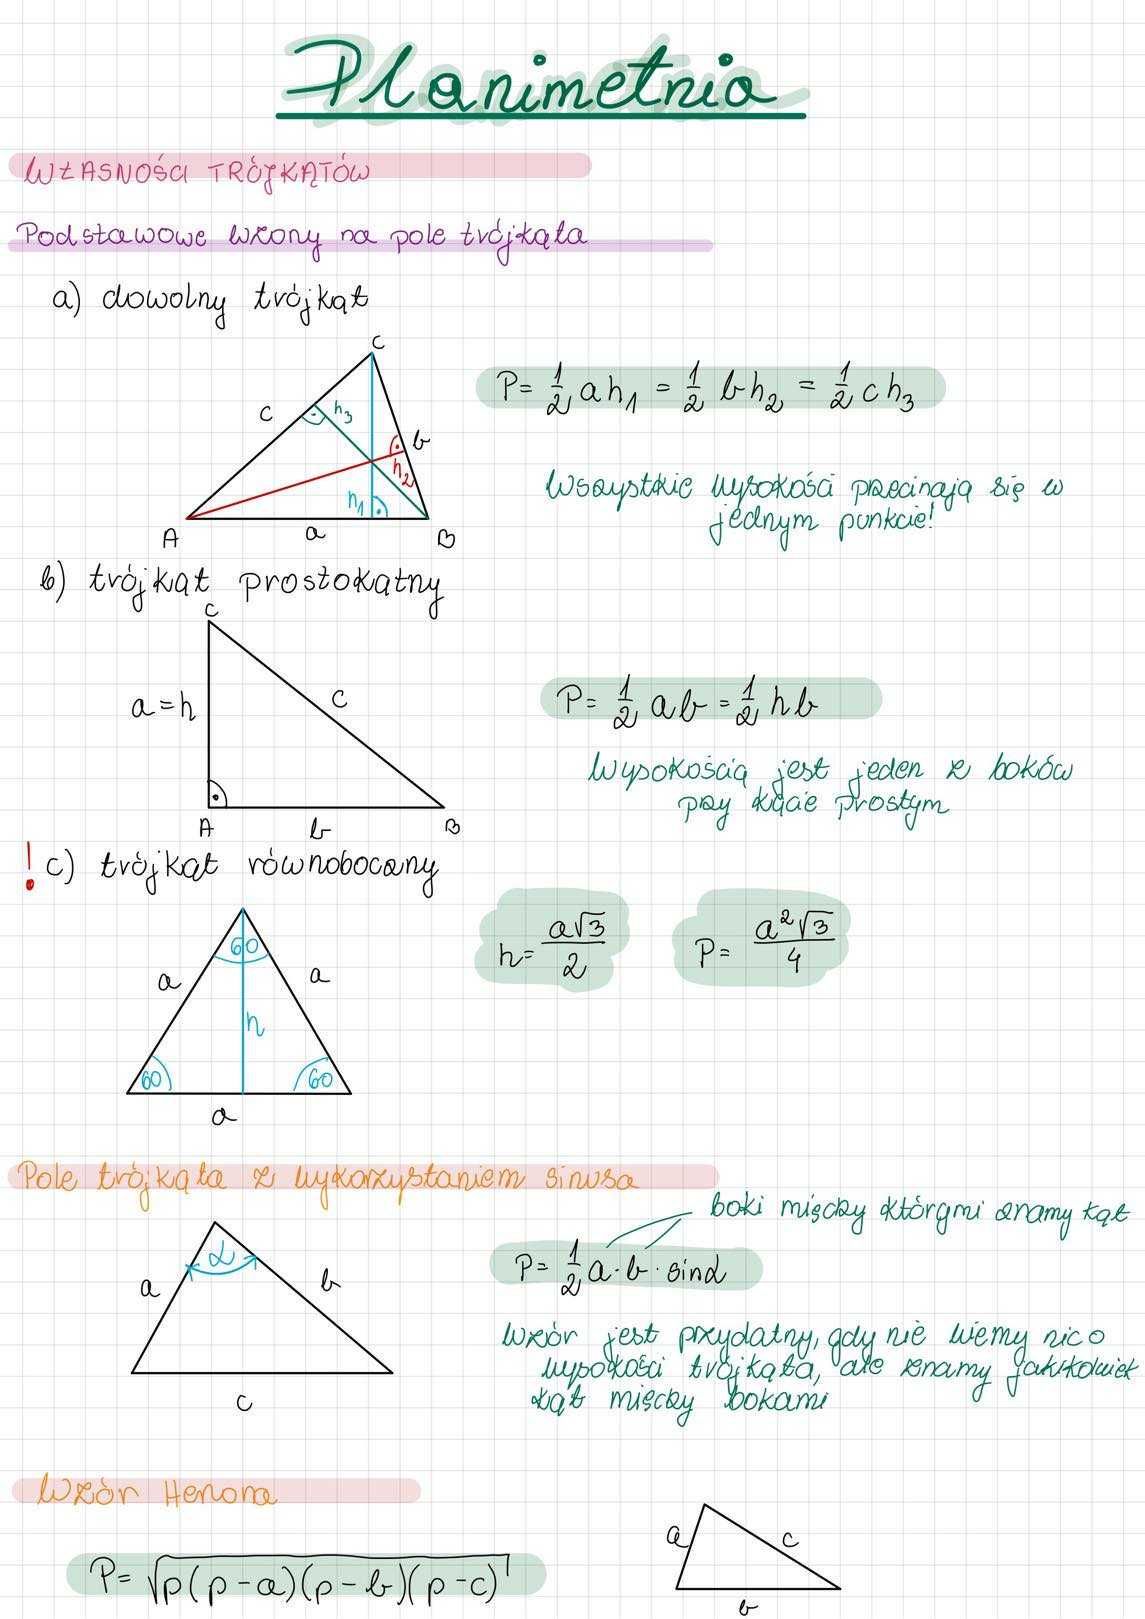 Planimetria
WŁASNOŚCI TRÓJKĄTÓW
Podstawowe wzory na pole trójkąta
a) dowolny trójkąt
C
c
h₃
b
h₂
h₁
A
a
B
P= 1/2 ah₁ = 1/2 bh₂ = 1/2 ch₃
Wszystkie wysokości przecinają się w
jednym punkcie!
b) trójkąt prostokątny
C
a=h
c
A
b
B
P= 1/2 ab = 1/2 hb
Wysokością jest jeden z boków
przy kącie prostym
! c) trójkąt równoboczny
60
a
a
h
60
60
a
h= a√3/2
P= a²√3/4
Pole trójkąta z wykorzystaniem sinusa
boki między którymi znamy kąt
α
a
b
c
P= 1/2 a·b·sinα
Wzór jest przydatny, gdy nie wiemy nic o
wysokości trójkąta, ale znamy jakikolwiek
kąt między bokami
Wzór Herona
P= √p(p-a)(p-b)(p-c)
a
c
b